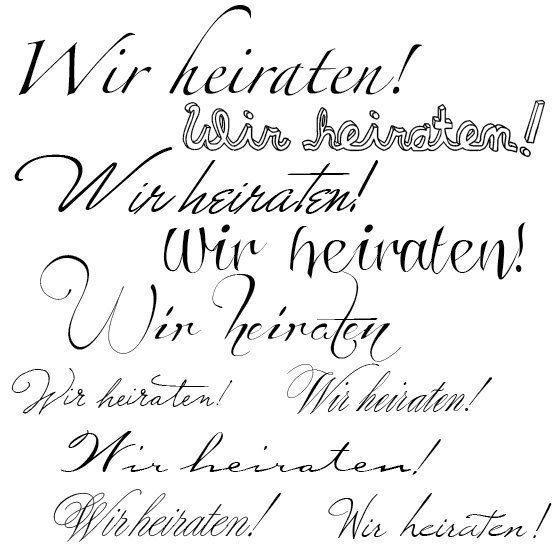 Wir heiraten!
Wir heiraten!
Wir heiraten!
Wir heiraten!
Wir heiraten
Wir heiraten! Wir heiraten!
Wir heiraten!
Wir heiraten! Wir heiraten!